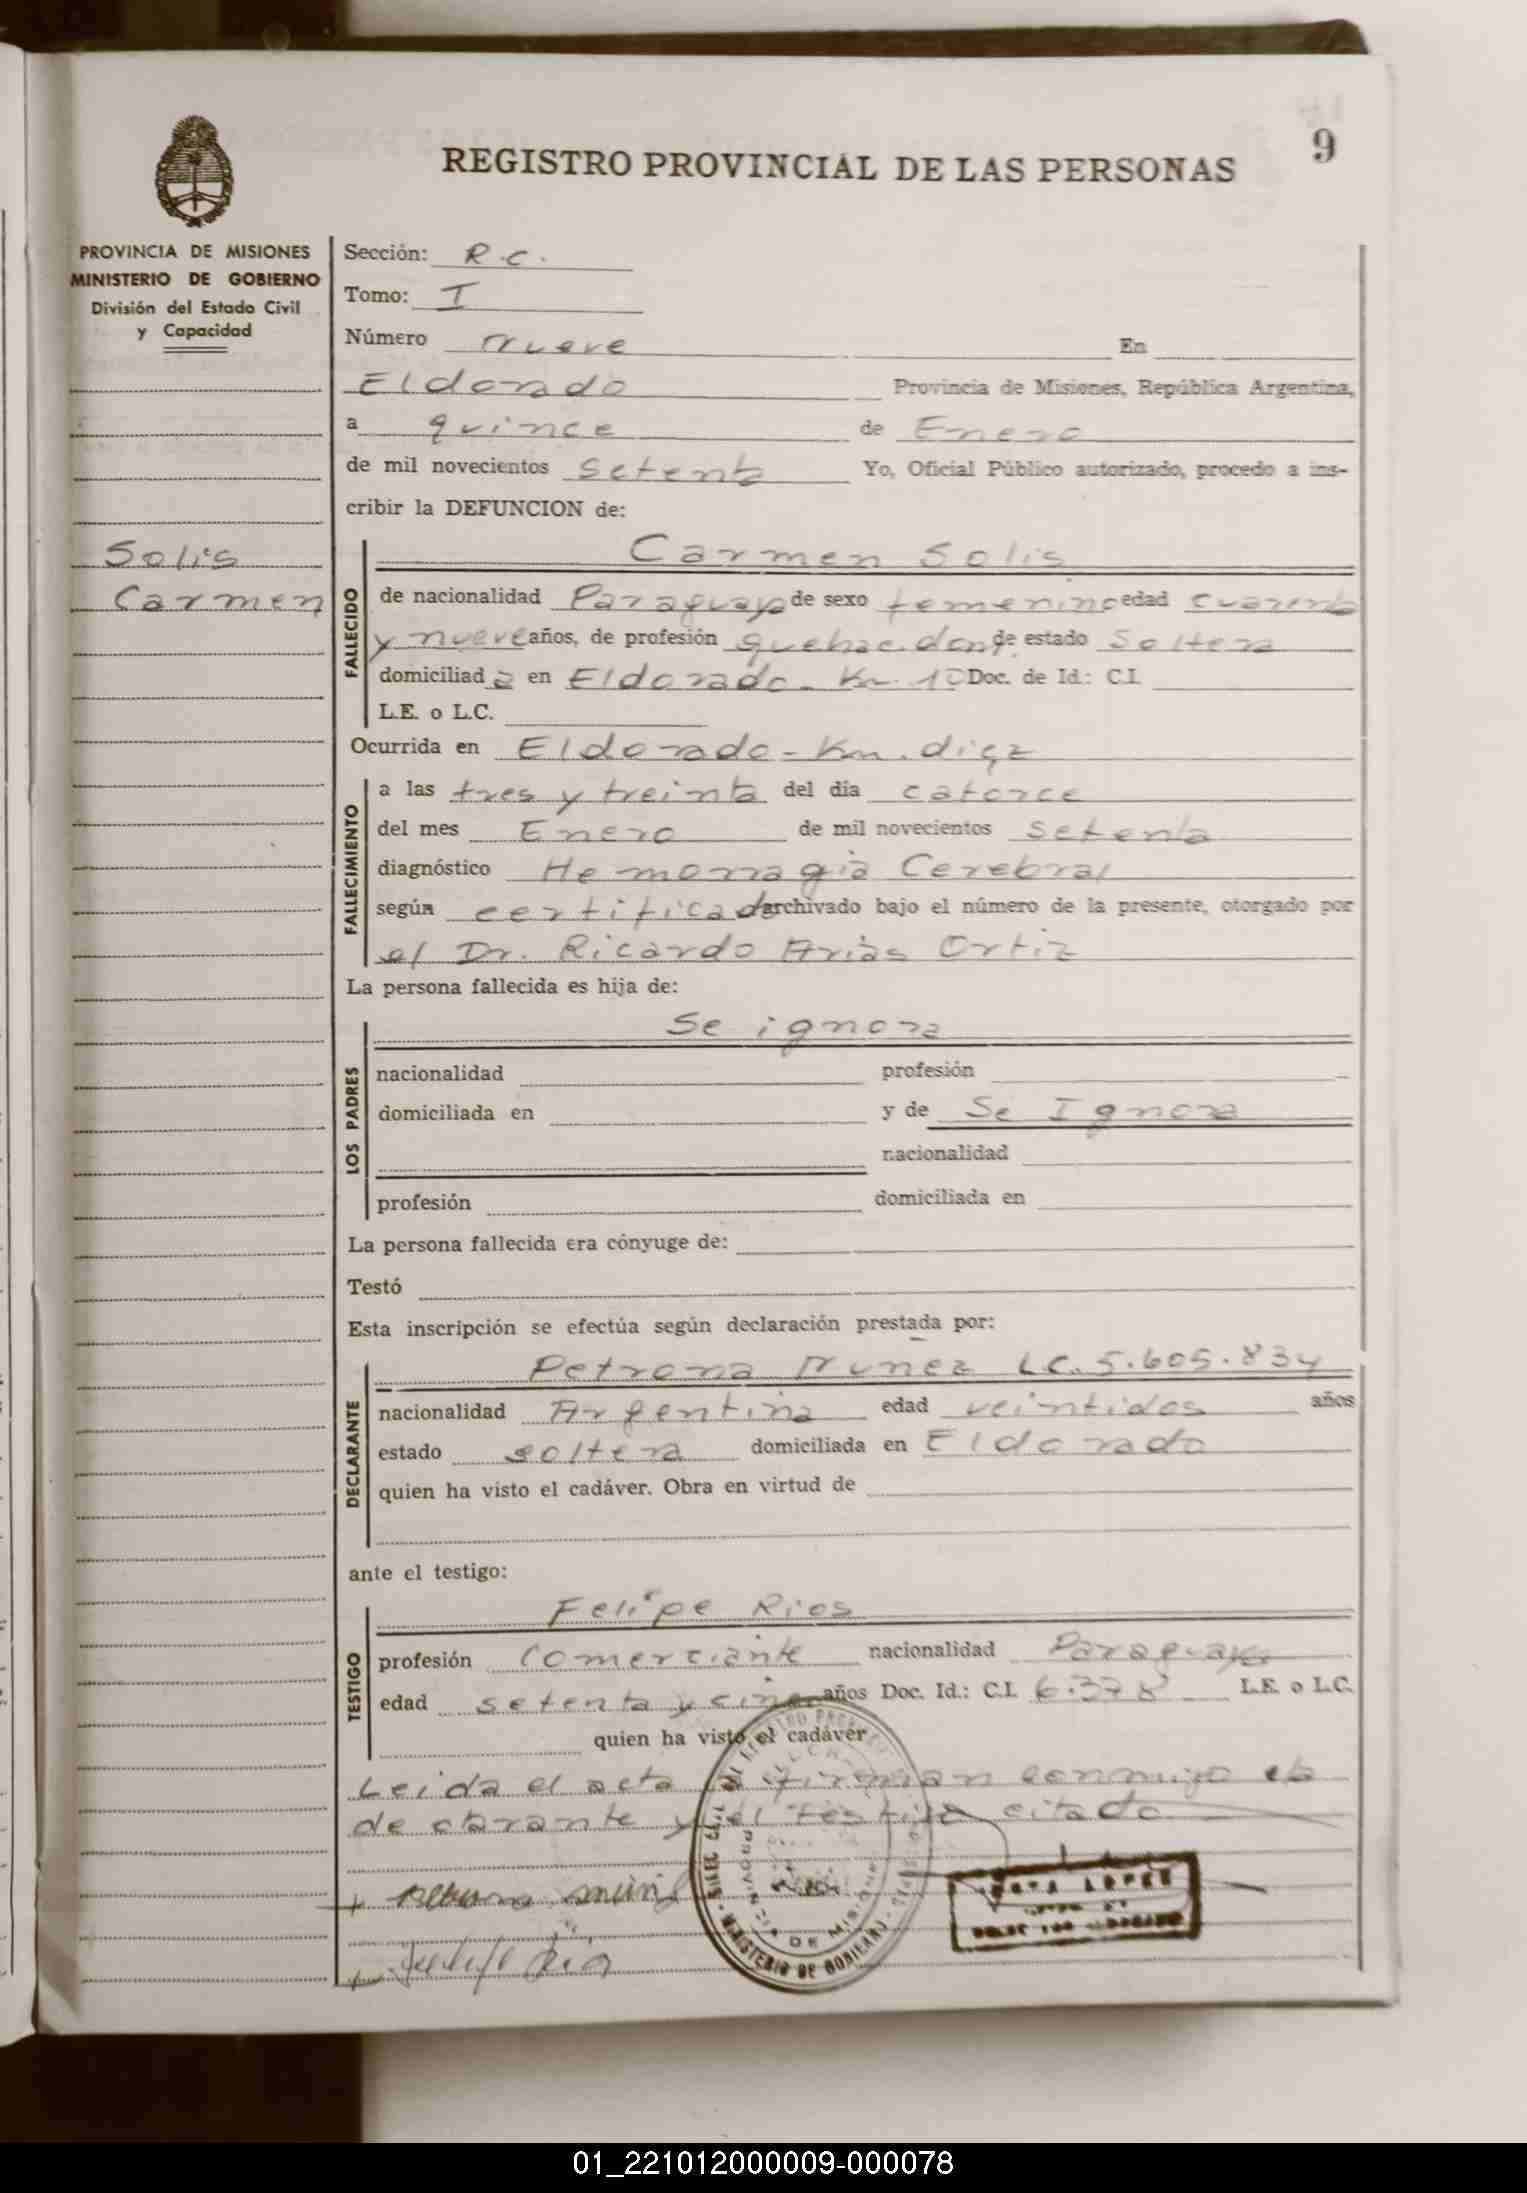 9
REGISTRO PROVINCIAL DE LAS PERSONAS
PROVINCIA DE MISIONES
MINISTERIO DE GOBIERNO
División del Estado Civil
y Capacidad
Solis
Carmen
Sección: R.C.
Tomo: I
Número nueve En
Eldorado Provincia de Misiones, República Argentina,
a quince de Enero
de mil novecientos setenta Yo, Oficial Público autorizado, procedo a ins-
cribir la DEFUNCION de:
FALLECIDO
Carmen Solis
de nacionalidad Paraguaya de sexo femenino edad cuarenta
y nueve años, de profesión quehac. dom. de estado Soltera
domiciliada en Eldorado - Km. 10 Doc. de Id.: C.I.
L.E. o L.C.
Ocurrida en Eldorado - Km. diez
FALLECIMIENTO
a las tres y treinta del día catorce
del mes Enero de mil novecientos setenta
diagnóstico Hemorragia Cerebral
según certificado archivado bajo el número de la presente, otorgado por
el Dr. Ricardo Arias Ortiz
La persona fallecida es hija de:
LOS PADRES
Se ignora
nacionalidad profesión
domiciliada en y de Se Ignora
nacionalidad
profesión domiciliada en
La persona fallecida era cónyuge de:
Testó
Esta inscripción se efectúa según declaración prestada por:
DECLARANTE
Petrona Nunez LC. 5.605.834
nacionalidad Argentina edad veintidos años
estado soltera domiciliada en Eldorado
quien ha visto el cadáver. Obra en virtud de
ante el testigo:
TESTIGO
Felipe Rios
profesión Comerciante nacionalidad Paraguayo
edad setenta y cinco años Doc. Id.: C.I. 6.378 L.E. o L.C.
quien ha visto el cadáver
Leida el acta la firman conmigo la
declarante y el testigo citado
MINISTERIO DE GOBIERNO
PROVINCIA DE MISIONES
01_221012000009-000078